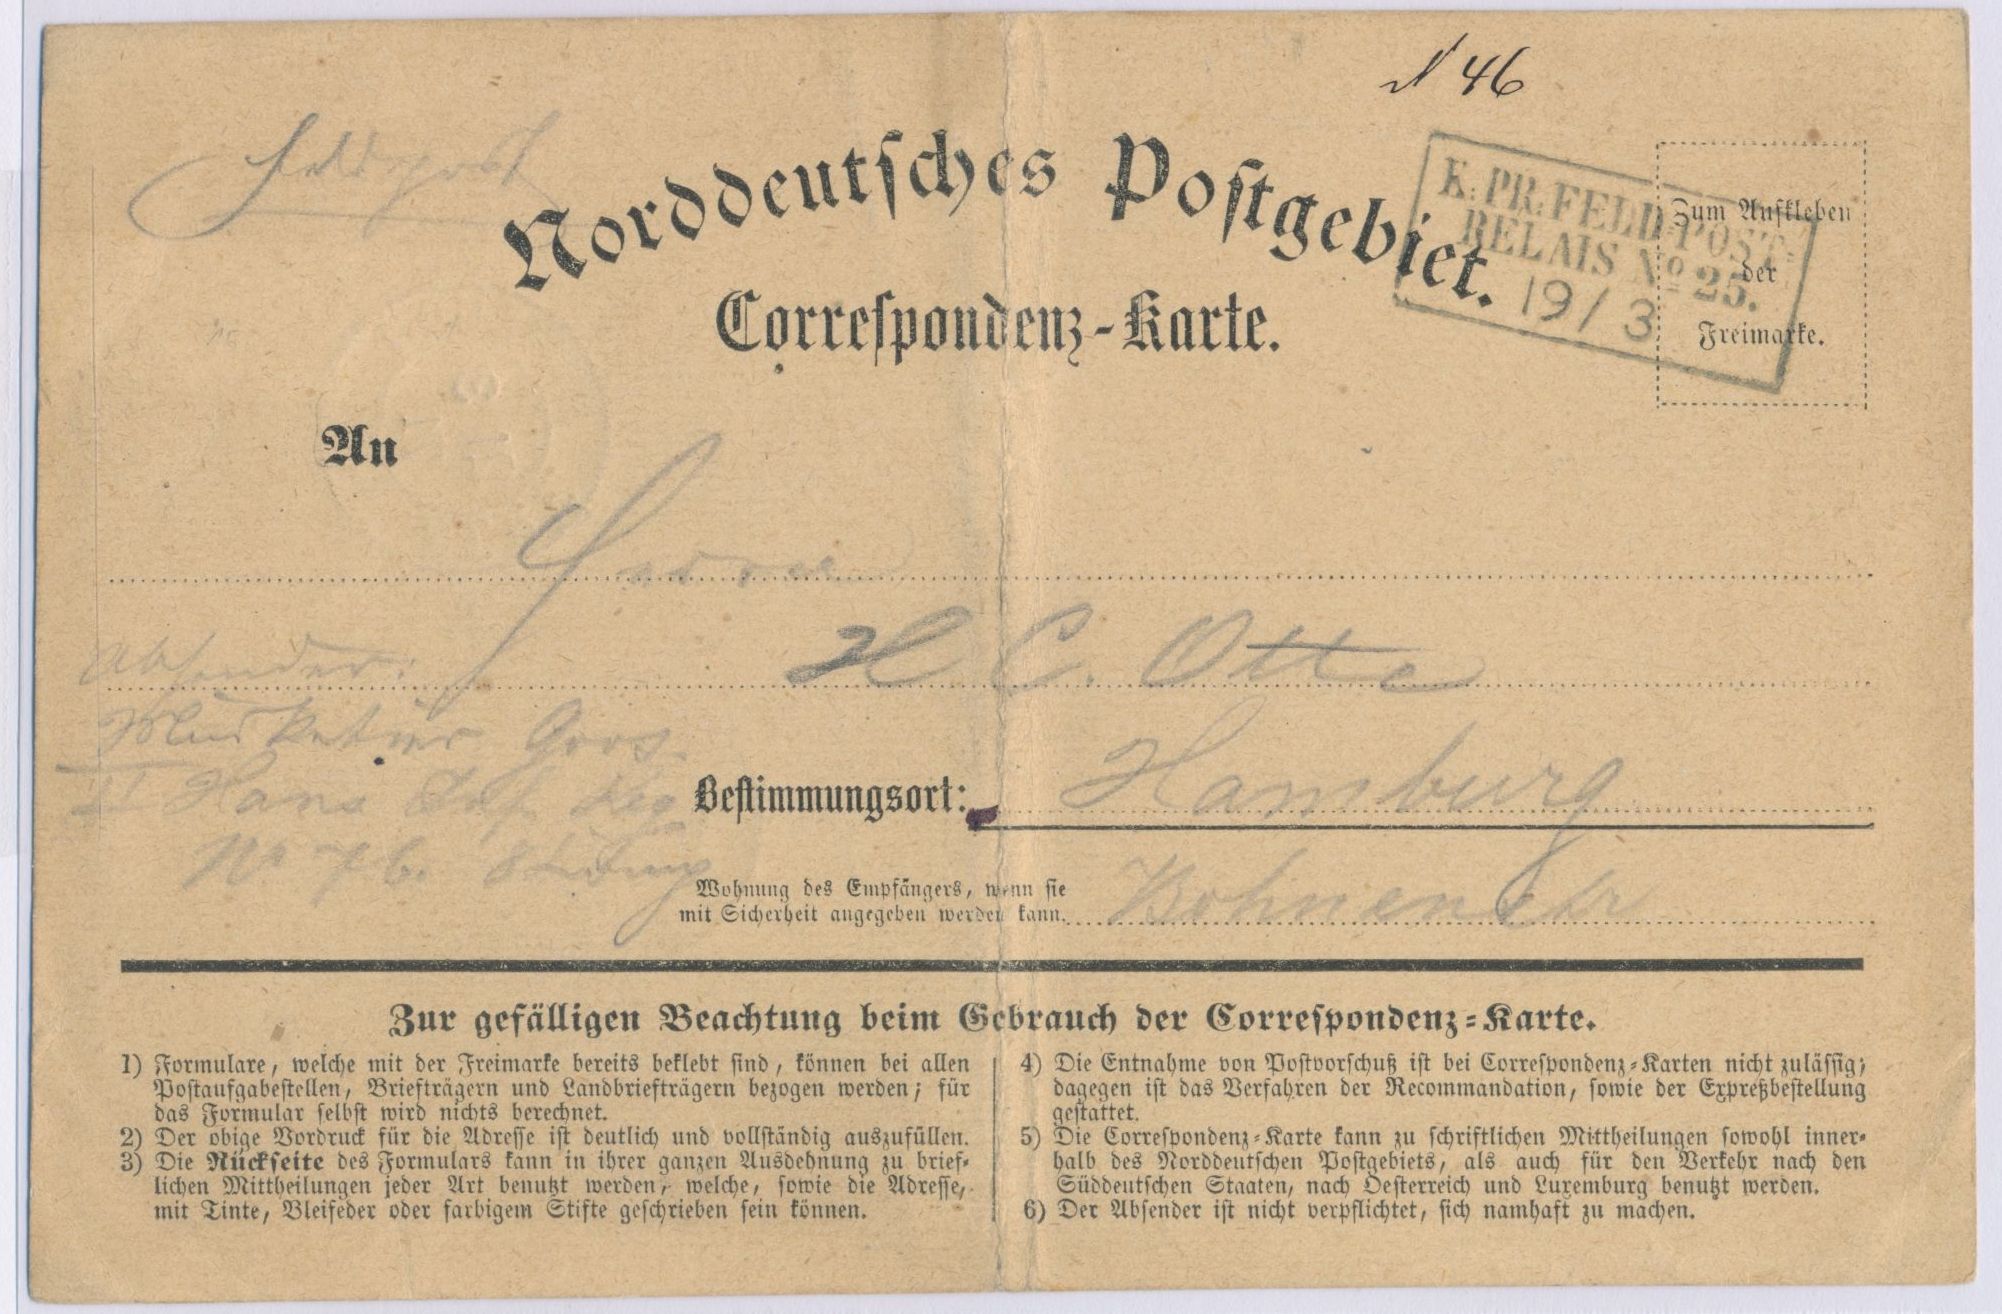 N 46
Feldpost
Norddeutsches Postgebiet.
K: PR: FELD-POST-
RELAIS No 25.
19/3
Zum Aufkleben
der
Freimarke.
Correspondenz-Karte.
An
Herrn
H C. Otte
Absender:
Musketier Goos.
II Hans Inf. Reg
No 76.
Bestimmungsort: Hamburg
Wohnung des Empfängers, wenn sie
mit Sicherheit angegeben werden kann. Bohnenstr
Zur gefälligen Beachtung beim Gebrauch der Correspondenz-Karte.
1) Formulare, welche mit der Freimarke bereits beklebt sind, können bei allen
Postaufgabestellen, Briefträgern und Landbriefträgern bezogen werden; für
das Formular selbst wird nichts berechnet.
2) Der obige Vordruck für die Adresse ist deutlich und vollständig auszufüllen.
3) Die Rückseite des Formulars kann in ihrer ganzen Ausdehnung zu brief-
lichen Mittheilungen jeder Art benutzt werden, welche, sowie die Adresse,
mit Tinte, Bleifeder oder farbigem Stifte geschrieben sein können.
4) Die Entnahme von Postvorschuß ist bei Correspondenz-Karten nicht zulässig;
dagegen ist das Verfahren der Recommandation, sowie der Expreßbestellung
gestattet.
5) Die Correspondenz-Karte kann zu schriftlichen Mittheilungen sowohl inner-
halb des Norddeutschen Postgebiets, als auch für den Verkehr nach den
Süddeutschen Staaten, nach Oesterreich und Luxemburg benutzt werden.
6) Der Absender ist nicht verpflichtet, sich namhaft zu machen.